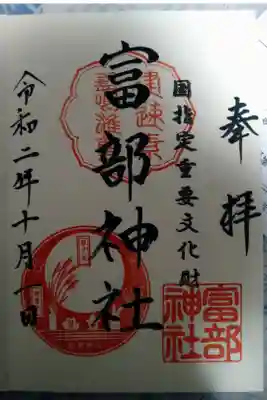 奉拝
国指定重要文化財
富部神社
令和二年十月一日
富部
神社